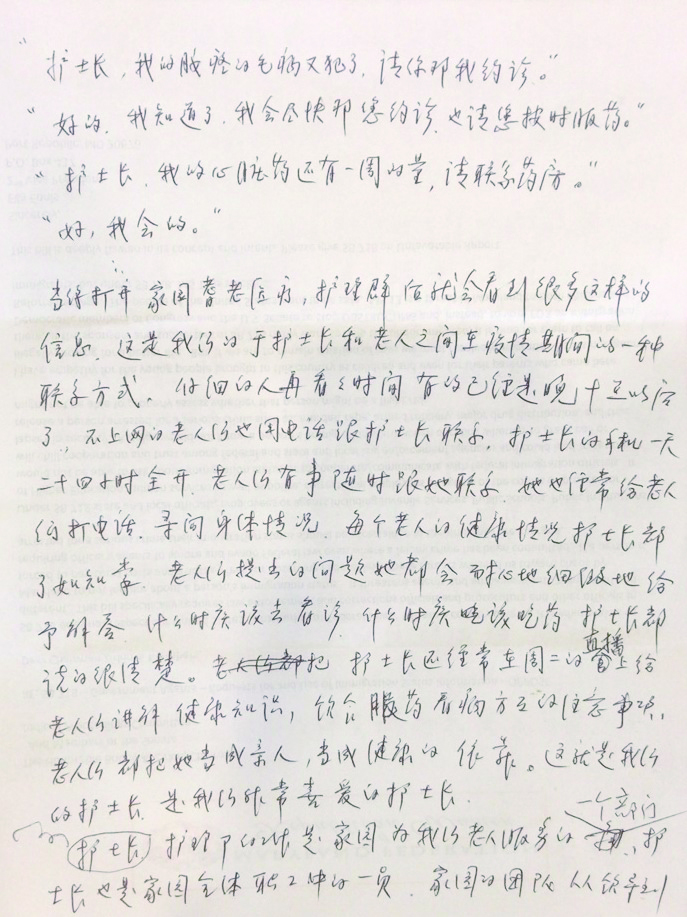 “护士长，我的胰腺的毛病又犯了，请你帮我约诊。”
“好的，我知道了，我会尽快帮您约诊，也请您按时服药。”
“护士长，我的心脏药还有一周的量，请联系药房。”
“好，我会的。”
当你打开家园耆老医疗，护理群后就会看到很多这样的
信息，这是我们的于护士长和老人之间在疫情期间的一种
联系方式。仔细的人再看看时间有的已经是晚十点以后
了，不上网的老人们也用电话跟护士长联系，护士长的手机一天
二十四小时全开，老人们有事随时跟她联系，她也经常给老人
们打电话，寻问身体情况，每个老人的健康情况护士长都
了如知掌，老人们提出的问题她都会耐心地细致地给
予解答，什么时候该去看诊，什么时候吃该吃药，护士长都
说的很清楚。护士长还经常在周二的直播上给
老人们讲解健康知识，饮食服药看病方面的注意事项，
老人们都把她当成亲人，当成健康的依靠。这就是我们
的护士长，是我们非常喜爱的护士长。
一个部门
护士长，护理是家园为我们老人服务的，护
士长也是家园全体职工中的一员，家园的团队从领导到